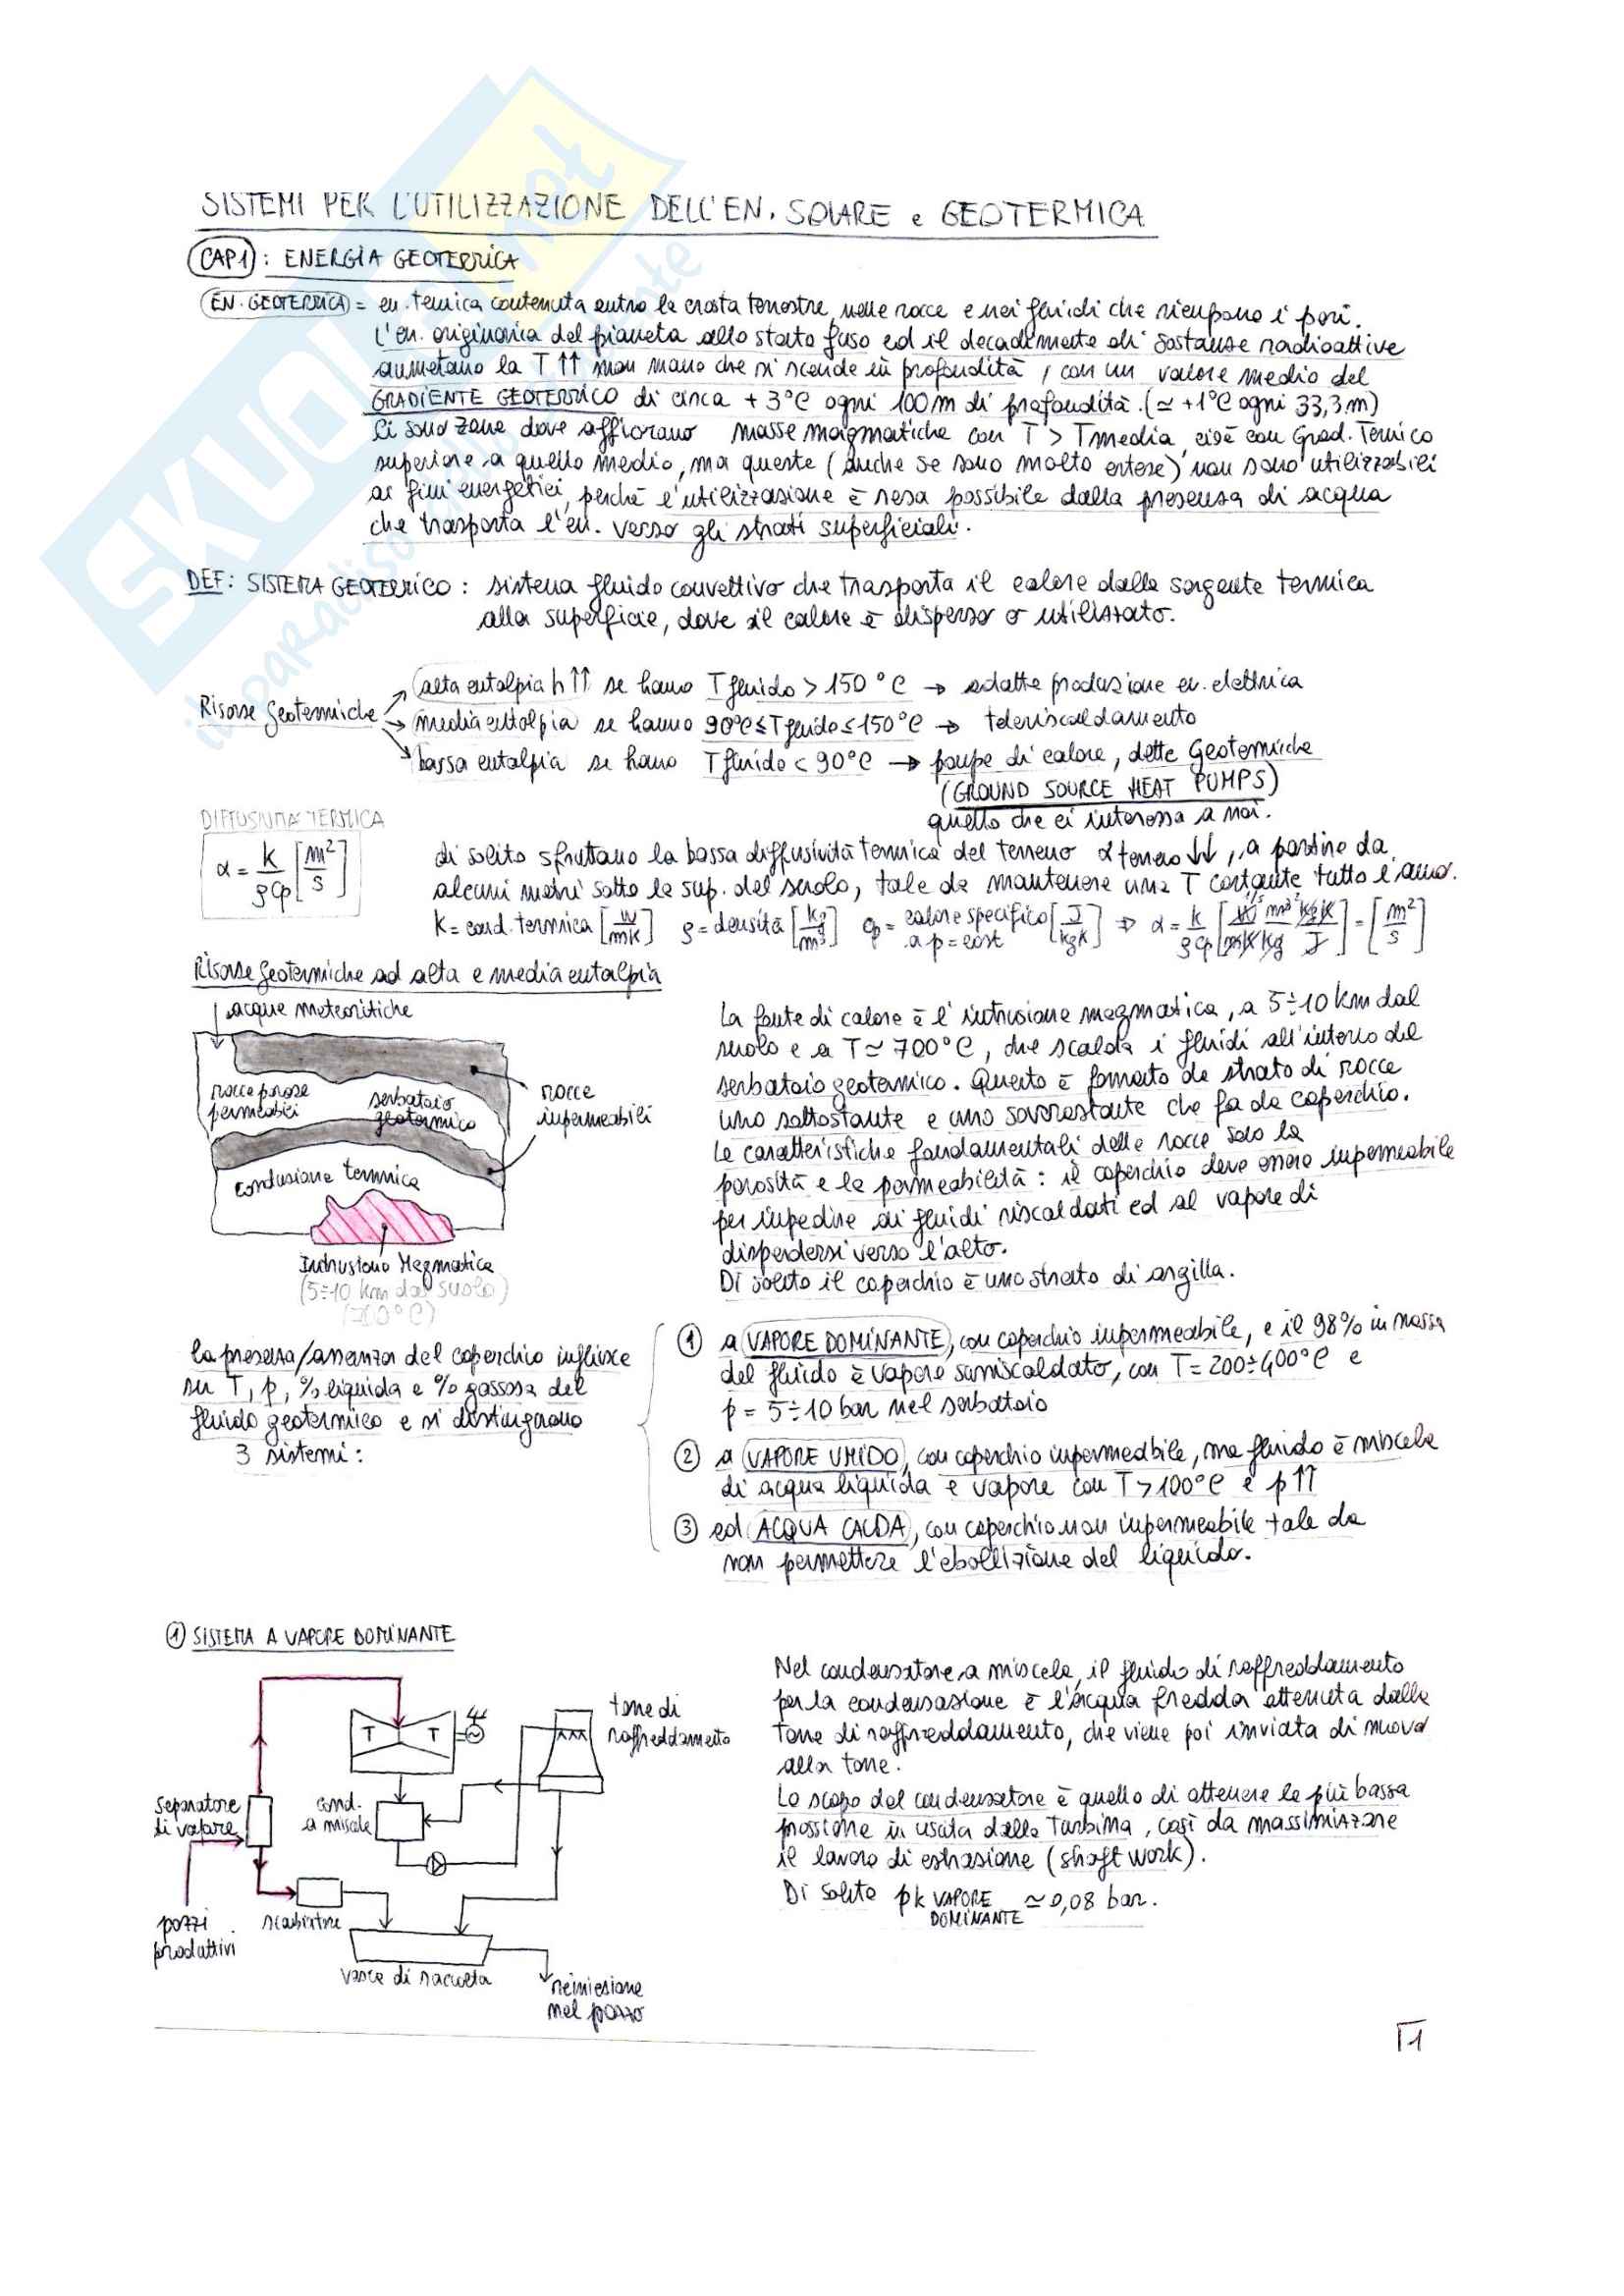 SISTEMI PER L'UTILIZZAZIONE DELL'EN. SOLARE e GEOTERMICA
CAP1: ENERGIA GEOTERMICA
EN. GEOTERMICA = en. termica contenuta entro la crosta terrestre, nelle rocce e nei fluidi che riempono i pori.
L'en. originaria del pianeta allo stato fuso ed il decadimento di sostanze radioattive
aumetano la T ↑↑ man mano che si scende in profondità, con un valore medio del
GRADIENTE GEOTERMICO di circa +3°C ogni 100m di profondità. (≃ +1°C ogni 33,3 m)
Ci sono zone dove affiorano masse magmatiche con T > Tmedia, cioè con Grad. Termico
superiore a quello medio, ma queste (anche se sono molto estese) non sono utilizzabili
ai fini energetici, perchè l'utilizzazione è resa possibile dalla presenza di acqua
che trasporta l'en. verso gli strati superficiali.
DEF: SISTEMA GEOTERMICO: sistema fluido convettivo che trasporta il calore dalla sorgente termica
alla superficie, dove il calore è disperso o utilizzato.
Risorse Geotermiche
alta entalpia h ↑↑ se hanno T fluido > 150°C → adatte produzione en. elettrica
media entalpia se hanno 90°C ≤ T fluido ≤ 150°C → teleriscaldamento
bassa entalpia se hanno T fluido < 90°C → pompe di calore, dette Geotermiche
(GROUND SOURCE HEAT PUMPS)
quello che ci interessa a noi.
DIFFUSIVITÀ TERMICA
α = k/ρcp [m²/s]
di solito sfruttano la bassa diffusività termica del terreno α terreno ↓↓, a partire da
alcuni metri sotto la sup. del suolo, tale da mantenere una T costante tutto l'anno.
K = cond. termica [W/mK] ρ = densità [kg/m³] cp = calore specifico a p = cost [J/kgK] ⇒ α = k/ρcp [J/s m³ kg K / m K kg J] = [m²/s]
Risorse Geotermiche ad alta e media entalpia
acque meteoritiche
rocce porose
permeabili
serbatoio
geotermico
rocce
impermeabili
conduzione termica
Intrusione Magmatica
(5÷10 km dal suolo)
(700°C)
La fonte di calore è l'intrusione magmatica, a 5÷10 km dal
suolo e a T ≃ 700°C, che scalda i fluidi all'interno del
serbatoio geotermico. Questo è formato da strato di rocce
uno sottostante e uno sovrastante che fa da coperchio.
Le caratteristiche fondamentali delle rocce solo la
porosità e la permeabilità: il coperchio deve essere impermeabile
per impedire ai fluidi riscaldati ed al vapore di
disperdersi verso l'alto.
Di solito il coperchio è uno strato di argilla.
la presenza/assenza del coperchio influisce
su T, p, % liquida e % gassosa del
fluido geotermico e si distinguono
3 sistemi:
① a VAPORE DOMINANTE, con coperchio impermeabile, e il 98% in massa
del fluido è vapore surriscaldato, con T = 200÷400°C e
p = 5÷10 bar nel serbatoio
② a VAPORE UMIDO, con coperchio impermeabile, ma fluido è miscela
di acqua liquida e vapore con T > 100°C e p ↑↑
③ ad ACQUA CALDA, con coperchio non impermeabile tale da
non permettere l'ebollizione del liquido.
① SISTEMA A VAPORE DOMINANTE
T T
torre di
raffreddamento
separatore
di vapore
cond.
a miscela
pozzi
produttivi
scambiatore
vasca di raccolta
reiniezione
nel pozzo
Nel condensatore a miscela, il fluido di raffreddamento
per la condensazione è l'acqua fredda ottenuta dalla
torre di raffreddamento, che viene poi inviata di nuovo
alla torre.
Lo scopo del condensatore è quello di ottenere la più bassa
pressione in uscita dalla turbina, così da massimizzare
il lavoro di estrazione (shaft work).
Di solito pk VAPORE DOMINANTE ≃ 0,08 bar.
1
SKUOLA.net
il paradiso dello studente